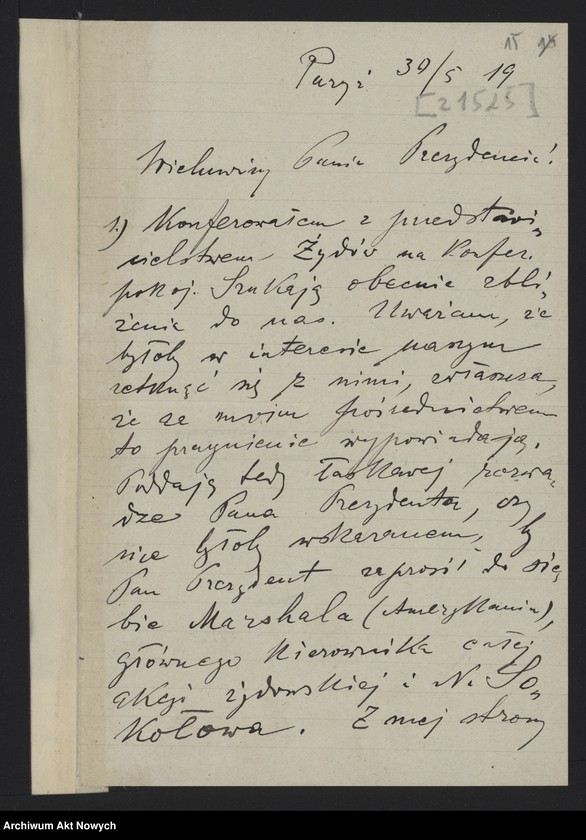 15
Paryż 30/5 19
[21525]
Wielmożny Panie Prezydencie!
1.) Konferowałem z przedstawi-
cielstwem Żydów na Konfer.
pokoj. Szukają obecnie zbli-
żenia do nas. Uważam, że
byłoby w interesie naszym
zetknąć się z nimi, zwłaszcza,
że za moim pośrednictwem
to pragnienie wypowiadają.
Poddaję tedy łaskawej rozwa-
dze Pana Prezydenta, czy
nie byłoby wskazanem, by
Pan Prezydent zaprosił do sie-
bie Marshala (Amerykanin),
głównego kierownika całej
akcji żydowskiej i N. So-
kołowa. Z mej strony
Archiwum Akt Nowych